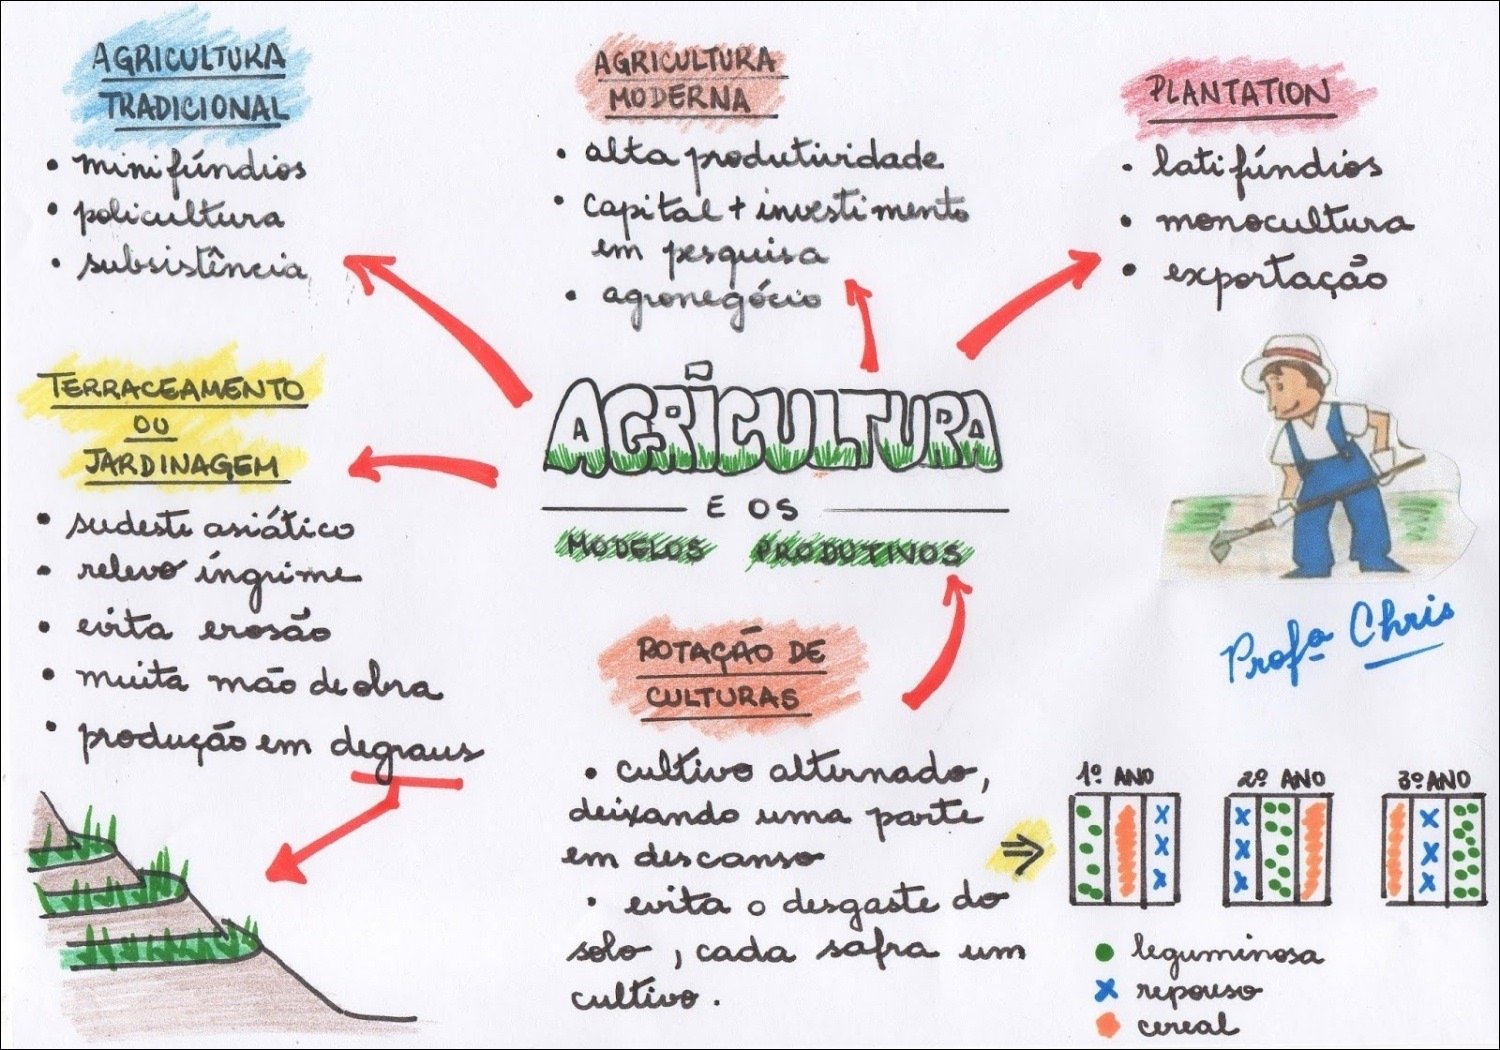 AGRICULTURA
TRADICIONAL
• minifúndios
• policultura
• subsistência
AGRICULTURA
MODERNA
• alta produtividade
• capital + investimento
em pesquisa
• agronegócio
PLANTATION
• latifúndios
• monocultura
• exportação
TERRACEAMENTO
OU
JARDINAGEM
• sudeste asiático
• relevo íngrime
• evita erosão
• muita mão de obra
• produção em degraus
AGRICULTURA
E OS
MODELOS PRODUTIVOS
Profª Chris
ROTAÇÃO DE
CULTURAS
• cultivo alternado,
deixando uma parte
em descanso
• evita o desgaste do
solo, cada safra um
cultivo.
1º ANO 2º ANO 3º ANO
leguminosa
repouso
cereal